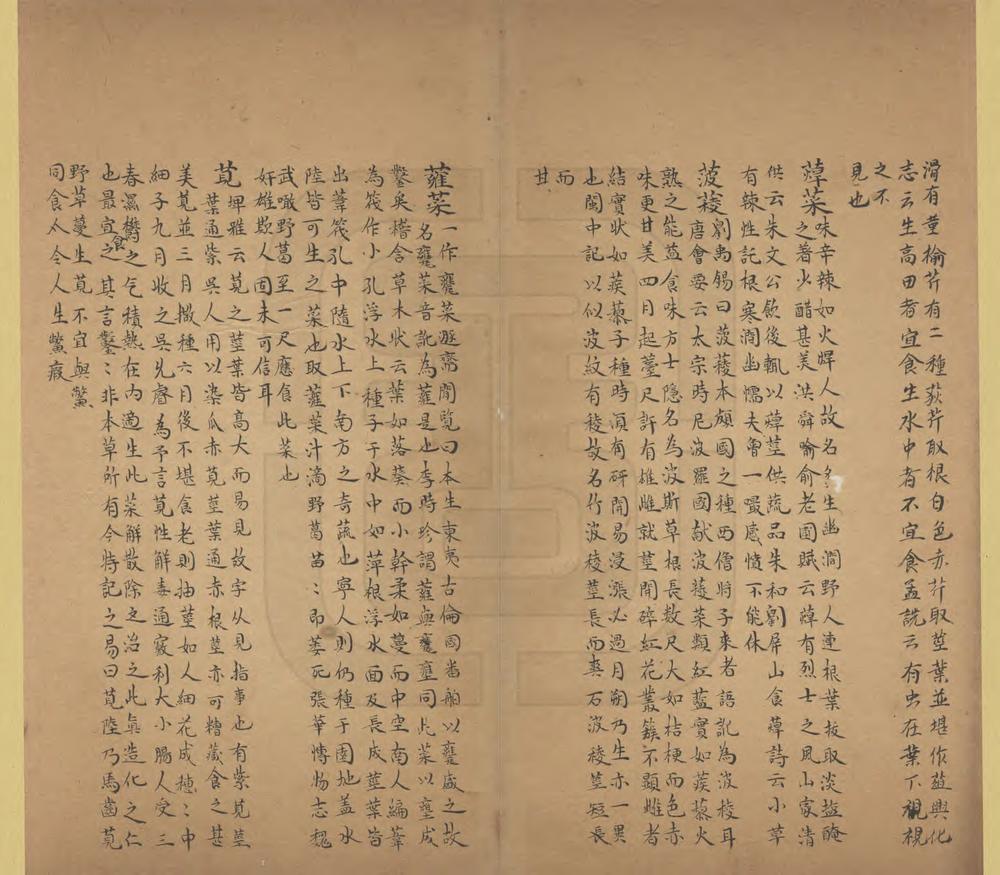 滑有堇榆芹有二種荻芹取根白色赤芹取莖葉並堪作葅與化
志云生高田者宜食生水中者不宜食孟詵云有虫在葉下視視
之不
見也
蔊菜味辛辣如火焊人故名多生幽澗野人連根葉拔取淡盐醃
之著少醋甚美洪舜喻俞老圃賦云蔊有烈士之風山家清
供云朱文公飲後輒以蔊莖供蔬品朱和劉屏山食蔊詩云小草
有辣性託根寒澗幽懦夫曾一嘬感憤不能休
菠薐劉禹錫曰菠薐本頗國之種西僧將子來者語訛為波棱耳
唐會要云太宗時尼波羅國献波薐菜類紅藍實如蒺藜火
熟之能益食味方士隐名為波斯草根長数尺大如桔梗而色赤
味更甘美四月起薹尺許有雄雌就莖開碎紅花叢簇不顯雌者
結實状如蒺藜子種時須有研開易浸漲必過月朔乃生亦一異
也閩中記以似波紋有稜故名竹波稜莖長而葉石波稜莖短長
而
甘
蕹菜一作甕菜遯齋閒覧曰本生東夷古倫國畨舶以甕盛之故
名甕菜音訛為蕹是也李時珍謂蕹與甕壅同此菜以壅成
鑿矣稽含草木状云葉如落葵而小幹柔如蔓而中空南人編葦
為筏作小孔浮水上種子于水中如萍根浮水面及長成莖葉皆
出葦筏孔中隨水上下南方之奇蔬也寧人則仍種于園地盖水
陸皆可生之菜也取蕹菜汁滴野葛苗:即萎死張華愽物志魏
武噉野葛至一尺應食此菜也
奸雄欺人固未可信耳
莧埤雅云莧之莖葉皆高大而易見故字从見指事也有紫莧莖
葉通紫吳人用以染瓜赤莧莖葉通赤根莖亦可糟藏食之甚
美莧並三月撒種六月後不堪食老則抽莖如人細花成穂:中
細子九月收之吳允睿為予言莧性解毒通竅利大小腸人受三
春濕欝之气積熱在内適生此菜解散除之治之此真造化之仁
也最宜食之其言鑿:非本草所有今特記之易曰莧陸乃馬齒莧
野草蔓生莧不宜與鱉
同食仌令人生鱉瘕